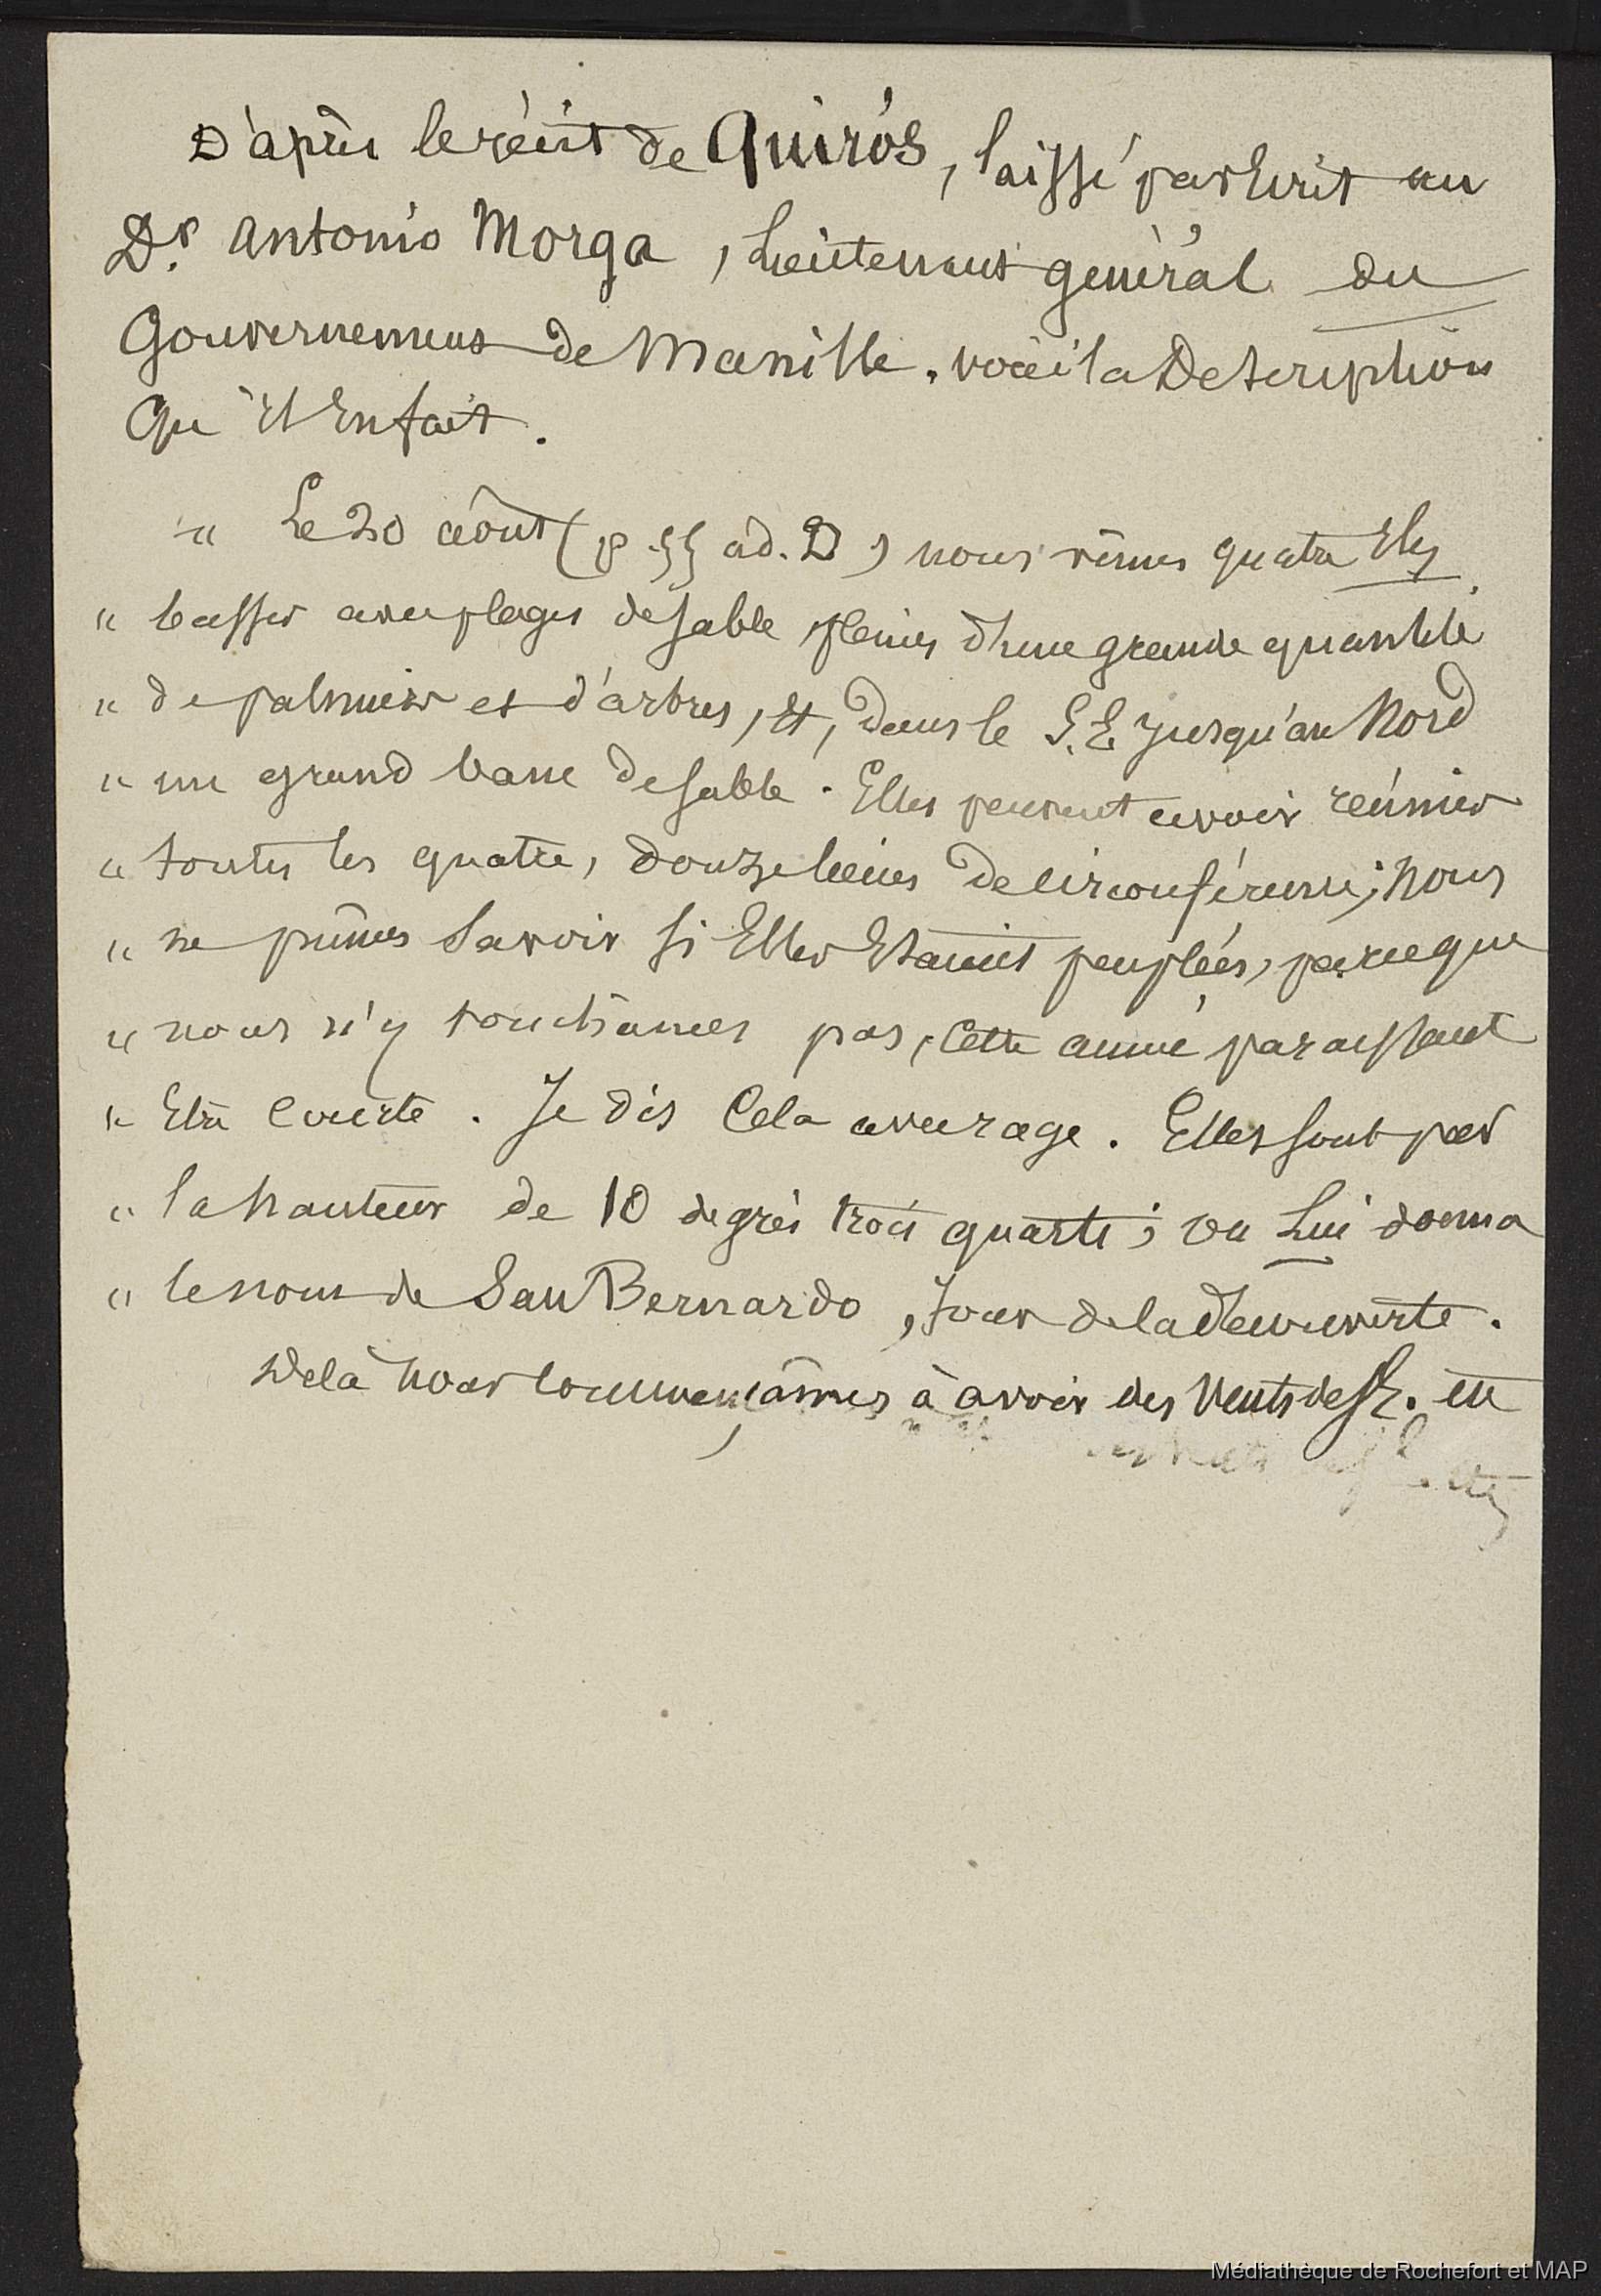 D'après le récit de Quirós, laissé par Ecrit au
Dr. Antonio Morga, Lieutenant général du
Gouvernement de Manille, voici la Description
Qu'il En fait.
" Le 20 août (p. 55 ad. D) nous vîmes quatre Iles
" basses avec plages de sable, pleines d'une grande quantité
" de palmiers et d'arbres, Et, dans le S.E jusqu'au Nord
" un grand banc de sable. Elles peuvent avoir réunies
" toutes les quatre, douze lieues de circonférence; Nous
" ne pûmes Savoir si Elles Etaient peuplées, parceque
" nous n'y touchâmes pas, Cette année paraissant
" Etre Courte. Je dis Cela avec rage. Elles sont par
" la hauteur de 10 degrés trois quarts; on Lui donna
" le nom de San Bernardo, Jour de la découverte.
De là nous commençâmes à avoir des Vents de SE. etc
Médiathèque de Rochefort et MAP